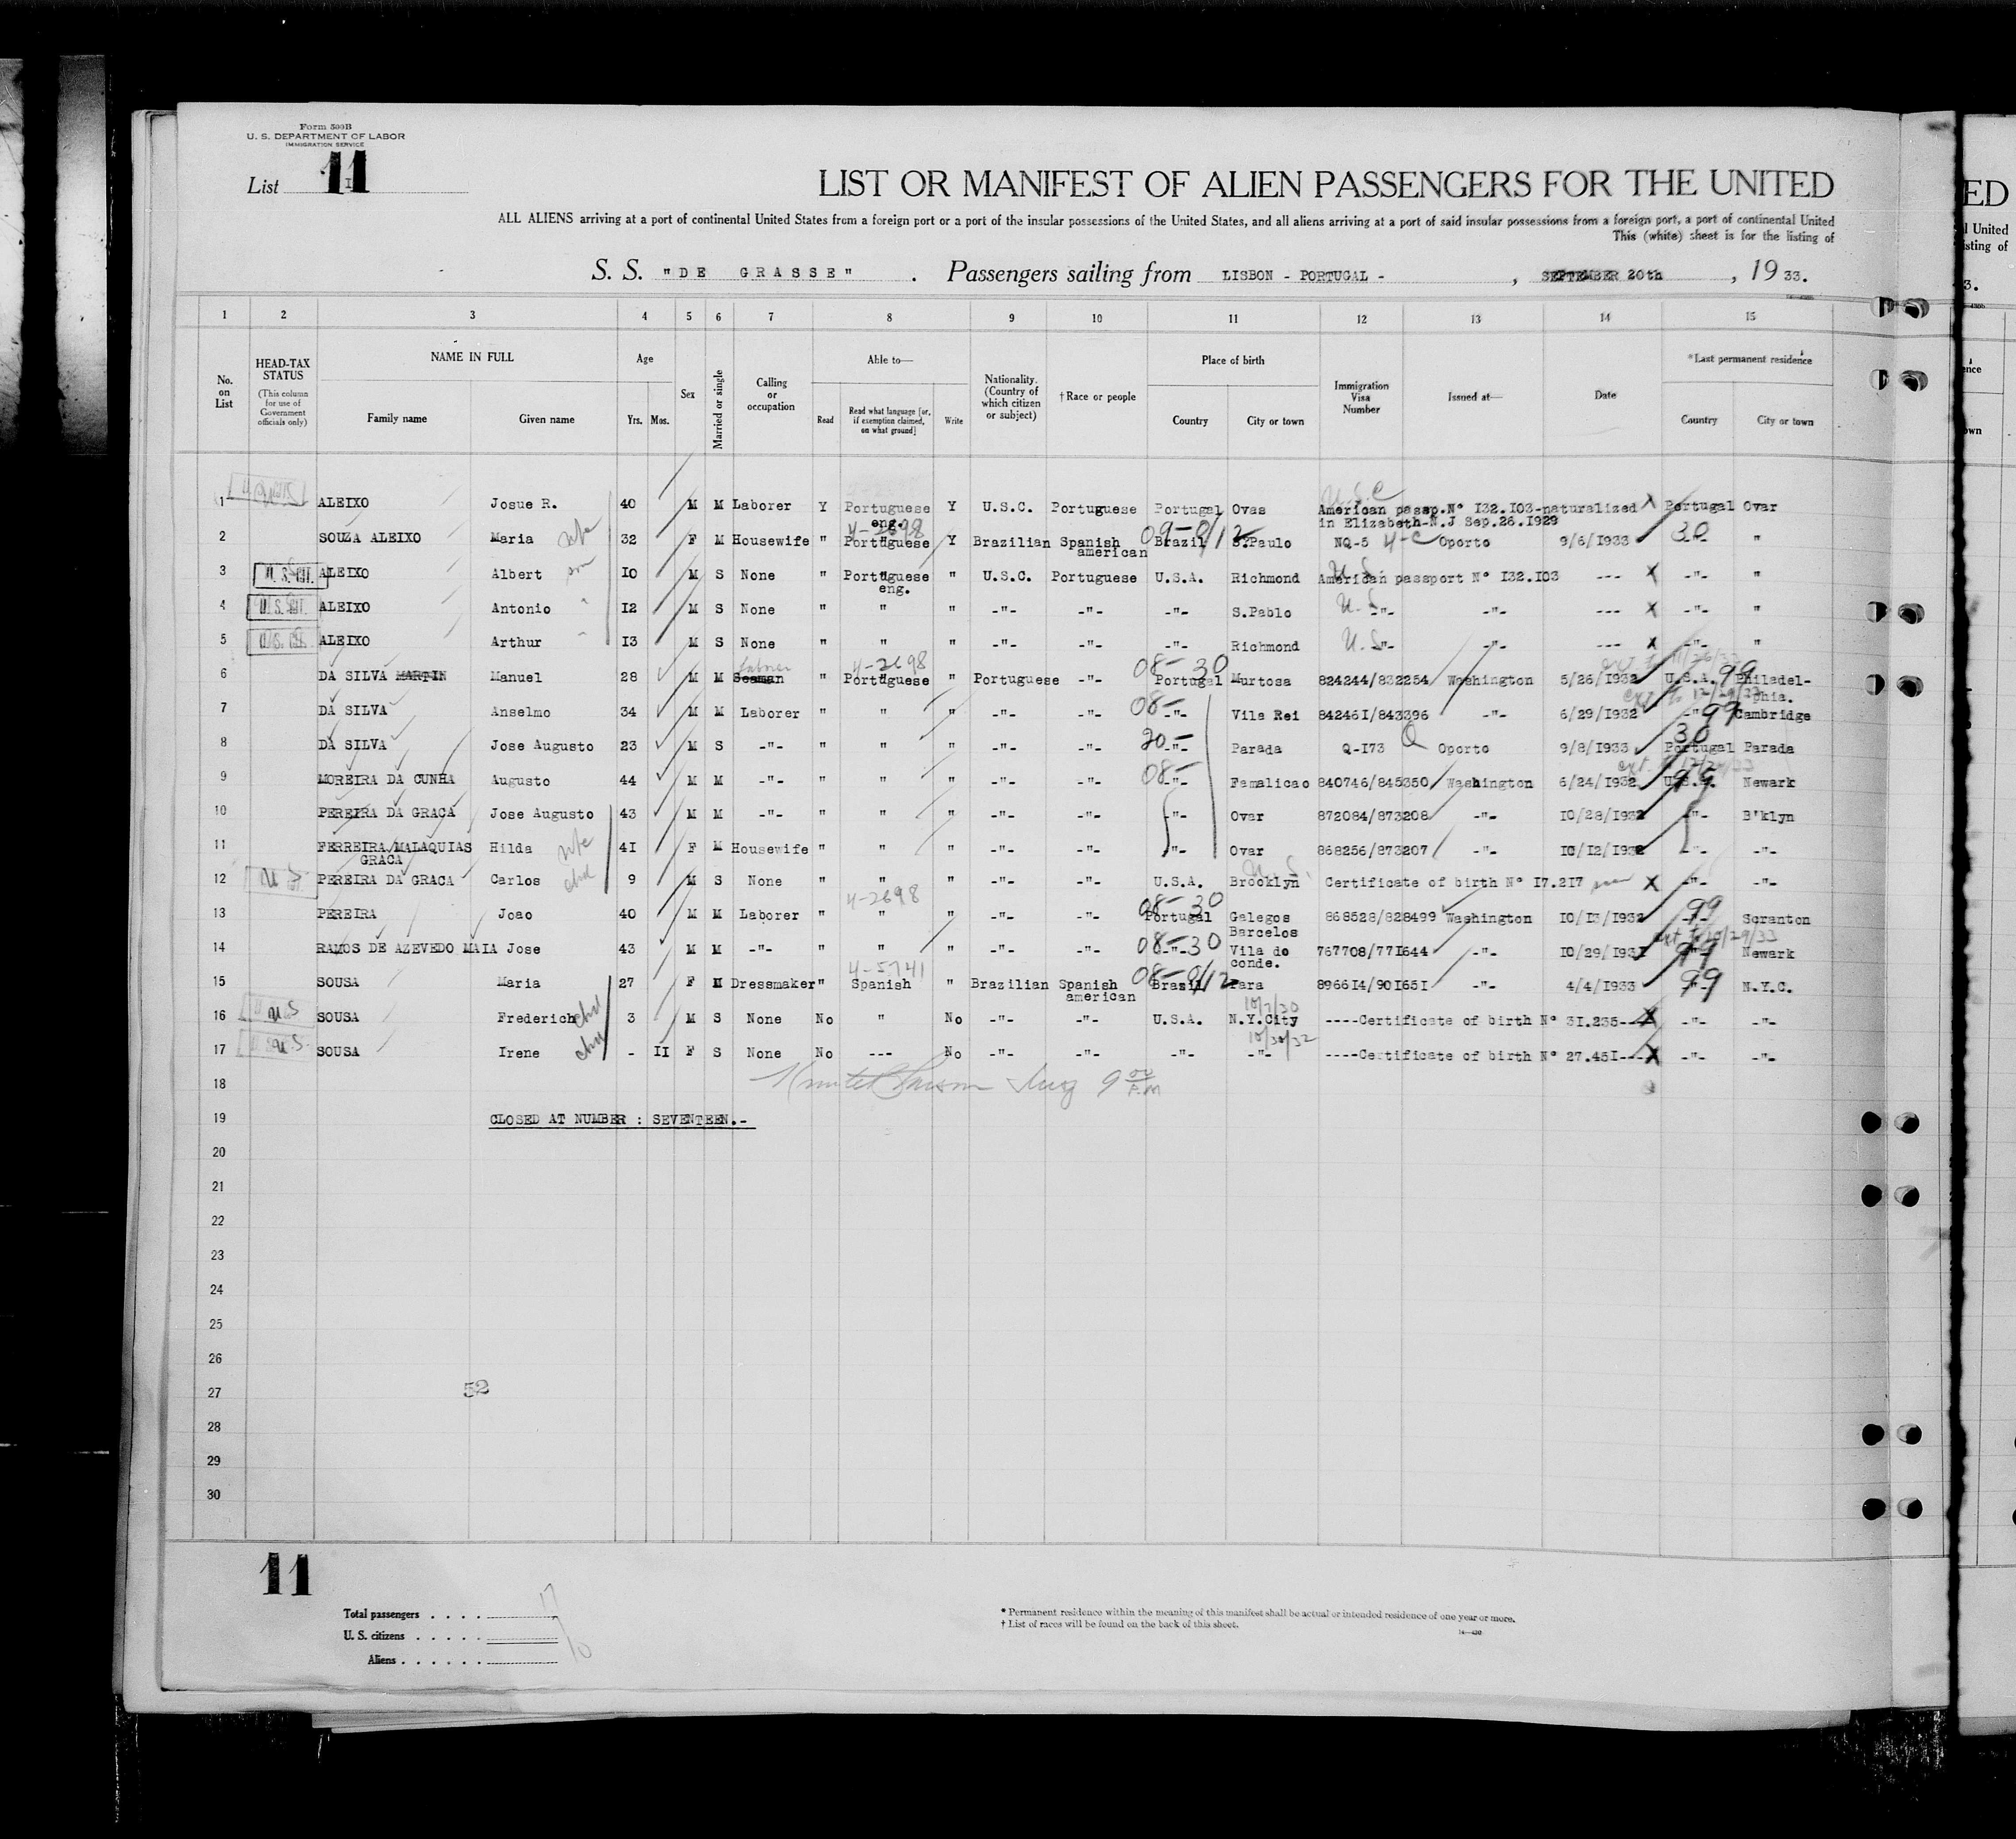 Form 500B
U. S. DEPARTMENT OF LABOR
IMMIGRATION SERVICE
List 11
LIST OR MANIFEST OF ALIEN PASSENGERS FOR THE UNITED
ALL ALIENS arriving at a port of continental United States from a foreign port or a port of the insular possessions of the United States, and all aliens arriving at a port of said insular possessions from a foreign port, a port of continental United
This (white) sheet is for the listing of
S. S. "DE GRASSE" . Passengers sailing from LISBON - PORTUGAL - , SEPTEMBER 20th , 19 33.
1 2 3 4 5 6 7 8 9 10 11 12 13 14 15
No. on List
HEAD-TAX STATUS (This column for use of Government officials only)
NAME IN FULL
Family name Given name
Age
Yrs. Mos.
Sex
Married or single
Calling or occupation
Able to—
Read Read what language [or, if exemption claimed, on what ground] Write
Nationality. (Country of which citizen or subject)
†Race or people
Place of birth
Country City or town
Immigration Visa Number
Issued at—
Date
*Last permanent residence
Country City or town
1 ALEIXO Josue R. 40 M M Laborer Y Portuguese eng. Y U.S.C. Portuguese Portugal Ovas American passp.Nº I32.I03-naturalized in Elizabeth-N.J Sep.26.I929 X Portugal Ovar
U.S.C
4-2698
2 SOUZA ALEIXO Maria wfe 32 F M Housewife " Portuguese Y Brazilian Spanish american Brazil S.Paulo NQ-5 4-C Oporto 9/6/I933 -"- "
09-0/12 30
3 U.S. CIT. ALEIXO Albert son IO M S None " Portuguese eng. " U.S.C. Portuguese U.S.A. Richmond American passport Nº I32.I03 --- X -"- "
4 U.S. CIT. ALEIXO Antonio " I2 M S None " " " -"- -"- -"- S.Pablo U.S. -"- -"- --- X -"- "
5 U.S. CIT. ALEIXO Arthur " I3 M S None " " " -"- -"- -"- Richmond U.S. -"- -"- --- X -"- "
Laborer 4-2698 08-30
6 DA SILVA MARTIN Manuel 28 M M Seaman " Portuguese " Portuguese -"- Portugal Murtosa 824244/832254 Washington 5/26/I932 U.S.A. 99 Philadel-phia.
ext to 12/29/33
7 DA SILVA Anselmo 34 M M Laborer " " " -"- -"- 08- -"- Vila Rei 84246I/843396 -"- 6/29/I932 -"- 99 Cambridge
8 DA SILVA Jose Augusto 23 M S -"- " " " -"- -"- -"- Parada Q-I73 Q Oporto 9/8/I933 30 Portugal Parada
9 MOREIRA DA CUNHA Augusto 44 M M -"- " " " -"- -"- 08- -"- Famalicao 840746/845350 Washington 6/24/I932 U.S.A. 99 Newark
10 PEREIRA DA GRACA Jose Augusto 43 M M -"- " " " -"- -"- -"- Ovar 872084/873208 -"- IO/28/I932 -"- B'klyn
11 FERREIRA MALAQUIAS GRACA Hilda wfe 4I F M Housewife " " " -"- -"- -"- Ovar 868256/873207 -"- IO/I2/I932 -"- -"-
12 US PEREIRA DA GRACA Carlos chd 9 M S None " " " -"- -"- U.S.A. Brooklyn U.S. Certificate of birth Nº I7.2I7 X -"- -"-
4-2698 08-30
13 PEREIRA Joao 40 M M Laborer " " " -"- -"- Portugal Galegos Barcelos 868528/828499 Washington IO/I3/I932 99 -"- Scranton
ext to 10/29/33
14 RAMOS DE AZEVEDO MAIA Jose 43 M M -"- " " " -"- -"- 08-30 -"- Vila do conde. 767708/77I644 -"- IO/29/I93I 99 -"- Newark
4-5741 08-0/12
15 SOUSA Maria 27 F M Dressmaker " Spanish " Brazilian Spanish american Brazil Para 8966I4/90I65I -"- 4/4/I933 99 -"- N.Y.C.
10/7/30
16 US SOUSA Frederich chd 3 M S None No " No -"- -"- U.S.A. N.Y.City ----Certificate of birth Nº 3I.235-- X -"- -"-
10/30/32
17 US SOUSA Irene chd - II F S None No --- No -"- -"- -"- -"- ----Certificate of birth Nº 27.45I--- X -"- -"-
18
19 CLOSED AT NUMBER : SEVENTEEN.-
20
21
22
23
24
25
26
27
52
28
29
30
11
Total passengers . . . . 17
U. S. citizens . . . . .
Aliens . . . . . . 10
* Permanent residence within the meaning of this manifest shall be actual or intended residence of one year or more.
† List of races will be found on the back of this sheet.